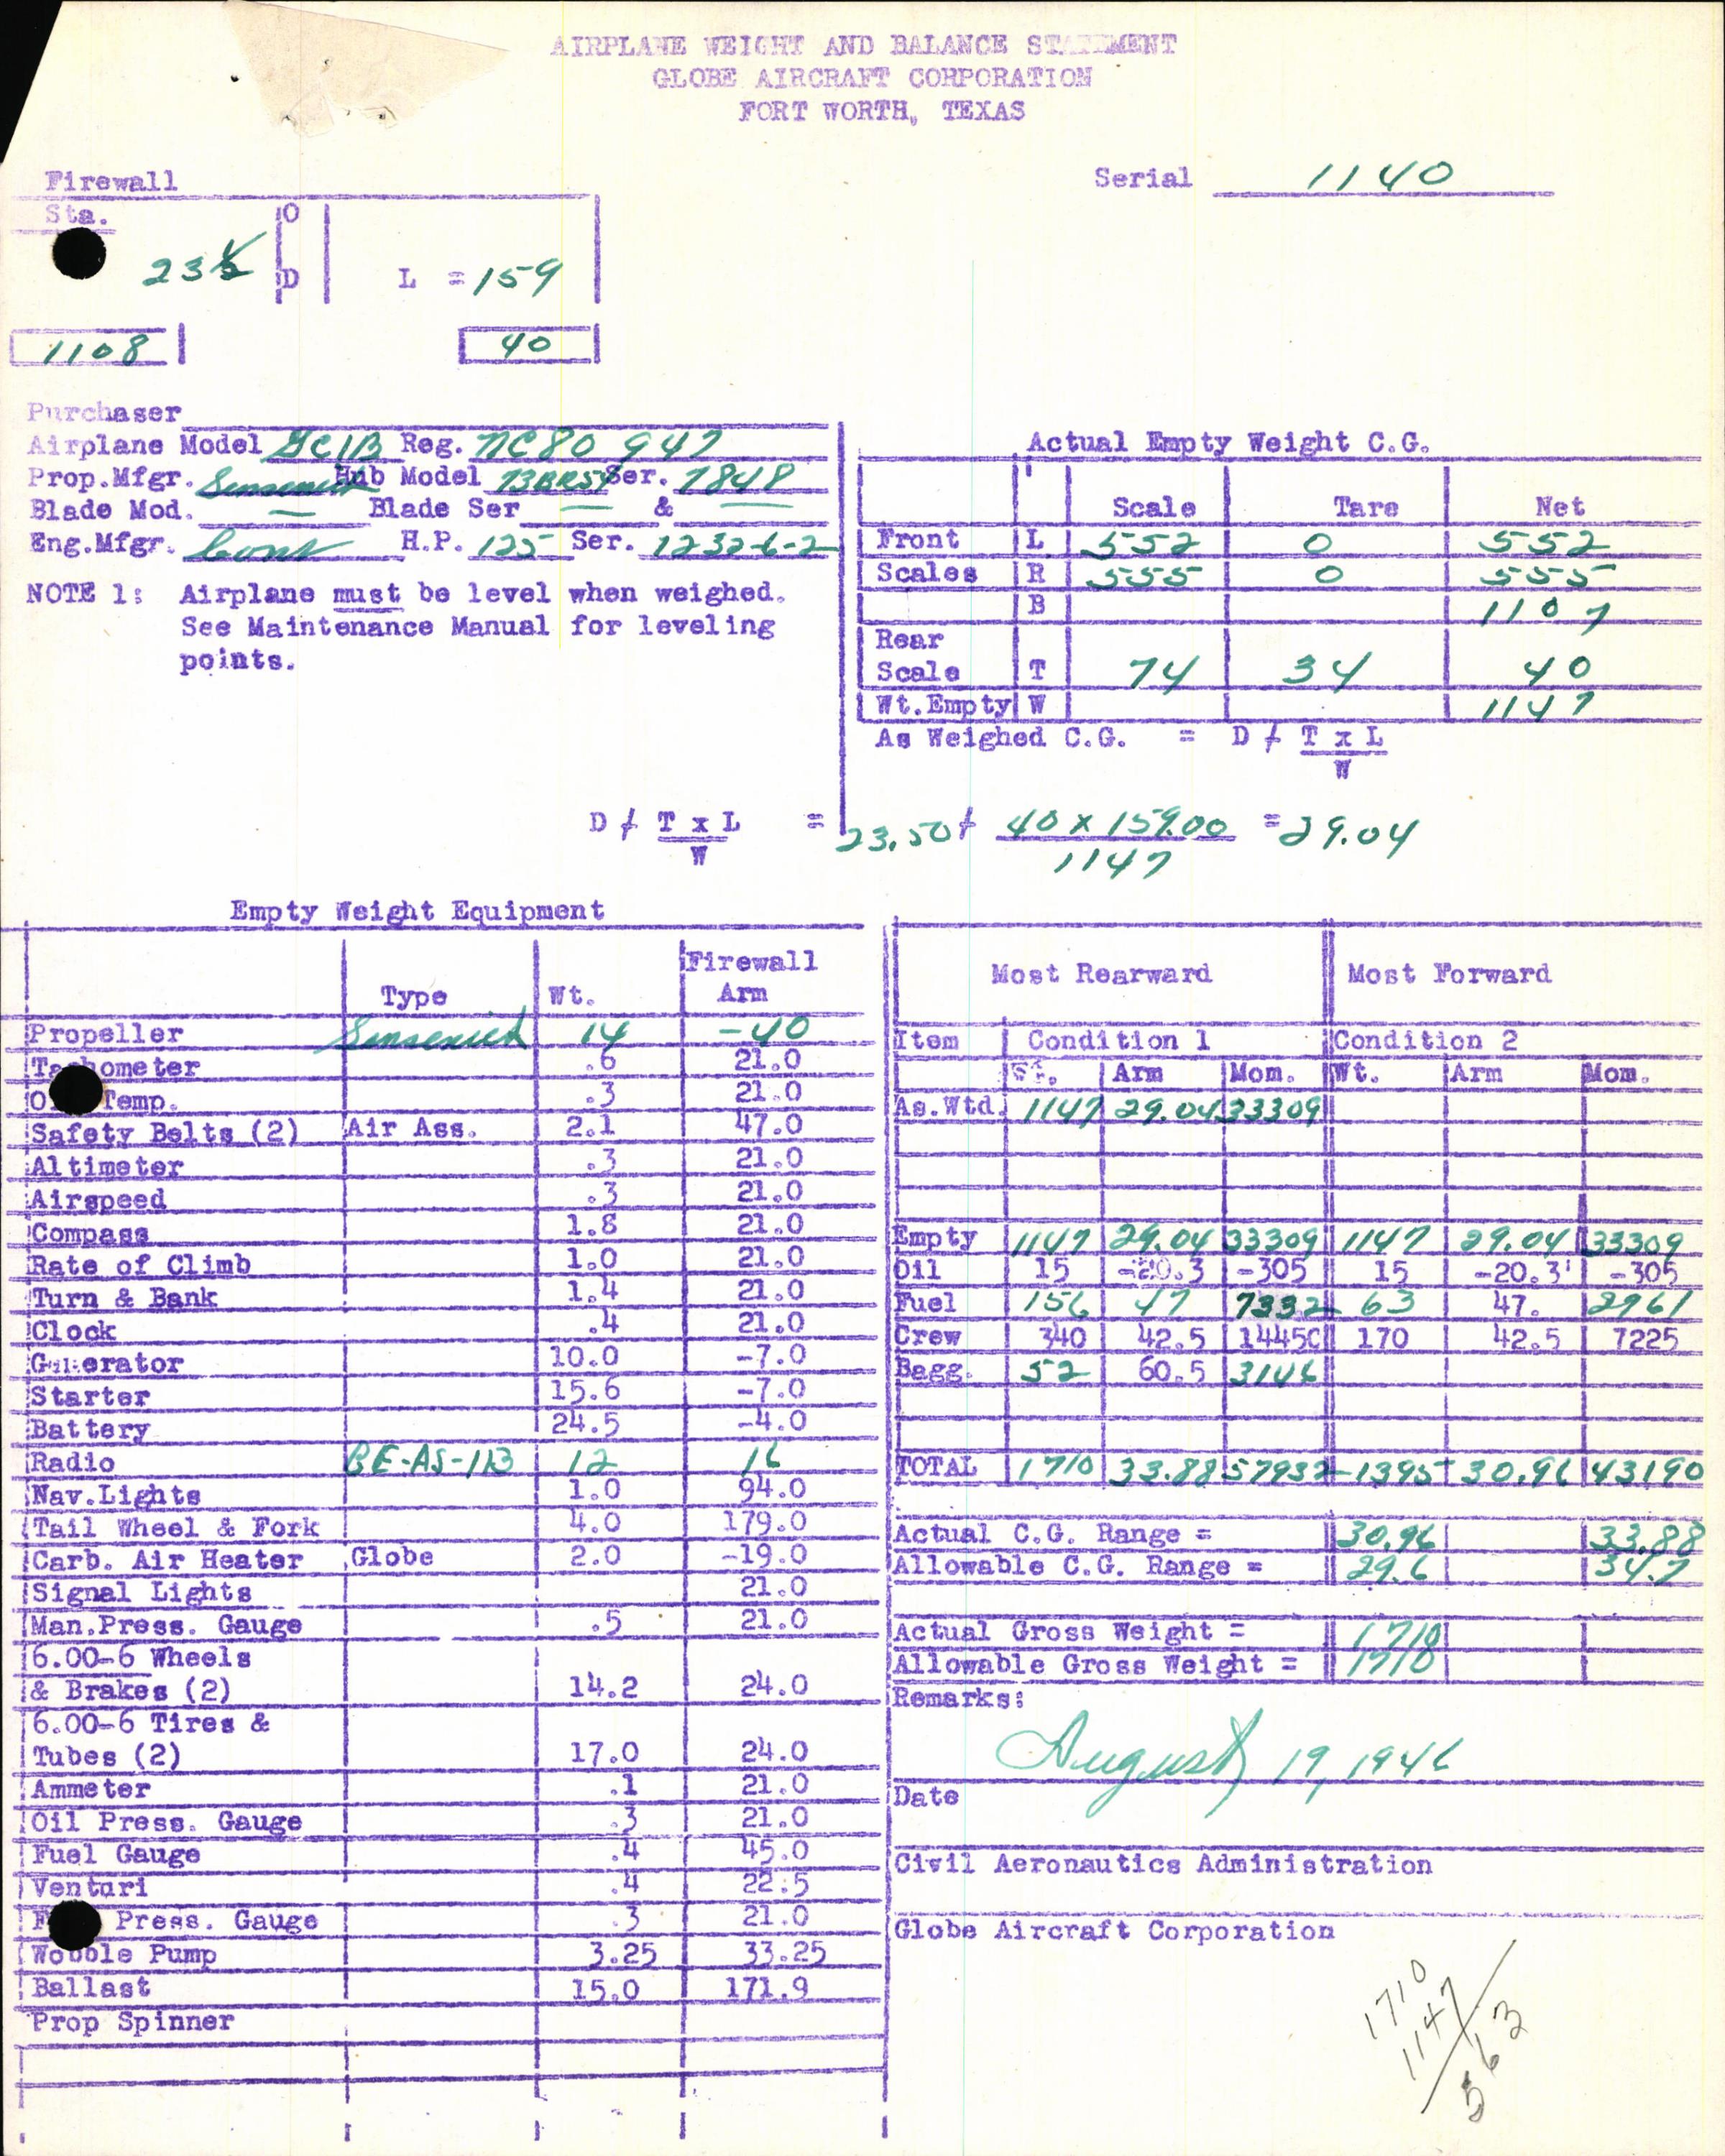 AIRPLANE WEIGHT AND BALANCE STATEMENT
GLOBE AIRCRAFT CORPORATION
FORT WORTH, TEXAS
Serial 1140
Firewall
Sta.
23 ½ O D L = 159
1108 40
Purchaser
Airplane Model GC1B Reg. NC80 947
Prop.Mfgr. Sensenich Hub Model 73BR54 Ser. 7848
Blade Mod. — Blade Ser — & —
Eng.Mfgr. Cont H.P. 125 Ser. 1232-6-2
NOTE 1: Airplane must be level when weighed.
See Maintenance Manual for leveling
points.
Actual Empty Weight C.G.
Scale Tare Net
Front L 552 0 552
Scales R 555 0 555
B 1107
Rear
Scale T 74 34 40
Wt.Empty W 1147
As Weighed C.G. = D + T x L
W
D + T x L = 23.50 + 40 x 159.00 = 29.04
W 1147
Empty Weight Equipment
Type Wt. Firewall Arm
Propeller Sensenich 14 -40
Tachometer .6 21.0
O Temp. .3 21.0
Safety Belts (2) Air Ass. 2.1 47.0
Altimeter .3 21.0
Airspeed .3 21.0
Compass 1.8 21.0
Rate of Climb 1.0 21.0
Turn & Bank 1.4 21.0
Clock .4 21.0
Generator 10.0 -7.0
Starter 15.6 -7.0
Battery 24.5 -4.0
Radio BE-AS-113 12 16
Nav.Lights 1.0 94.0
Tail Wheel & Fork 4.0 179.0
Carb. Air Heater Globe 2.0 -19.0
Signal Lights 21.0
Man.Press. Gauge .5 21.0
6.00-6 Wheels
& Brakes (2) 14.2 24.0
6.00-6 Tires &
Tubes (2) 17.0 24.0
Ammeter .1 21.0
Oil Press. Gauge .3 21.0
Fuel Gauge .4 45.0
Venturi .4 22.5
F Press. Gauge .3 21.0
Wobble Pump 3.25 33.25
Ballast 15.0 171.9
Prop Spinner
Most Rearward Most Forward
Item Condition 1 Condition 2
Wt. Arm Mom. Wt. Arm Mom.
As.Wtd. 1147 29.04 33309
Empty 1147 29.04 33309 1147 29.04 33309
Oil 15 -20.3 -305 15 -20.3 -305
Fuel 156 47 7332 63 47. 2961
Crew 340 42.5 14450 170 42.5 7225
Bagg. 52 60.5 3146
TOTAL 1710 33.88 57932 1395 30.96 43190
Actual C.G. Range = 30.96 33.88
Allowable C.G. Range = 29.6 34.7
Actual Gross Weight = 1710
Allowable Gross Weight = 1710
Remarks:
August 19, 1946
Date
Civil Aeronautics Administration
Globe Aircraft Corporation
1710
1147
563